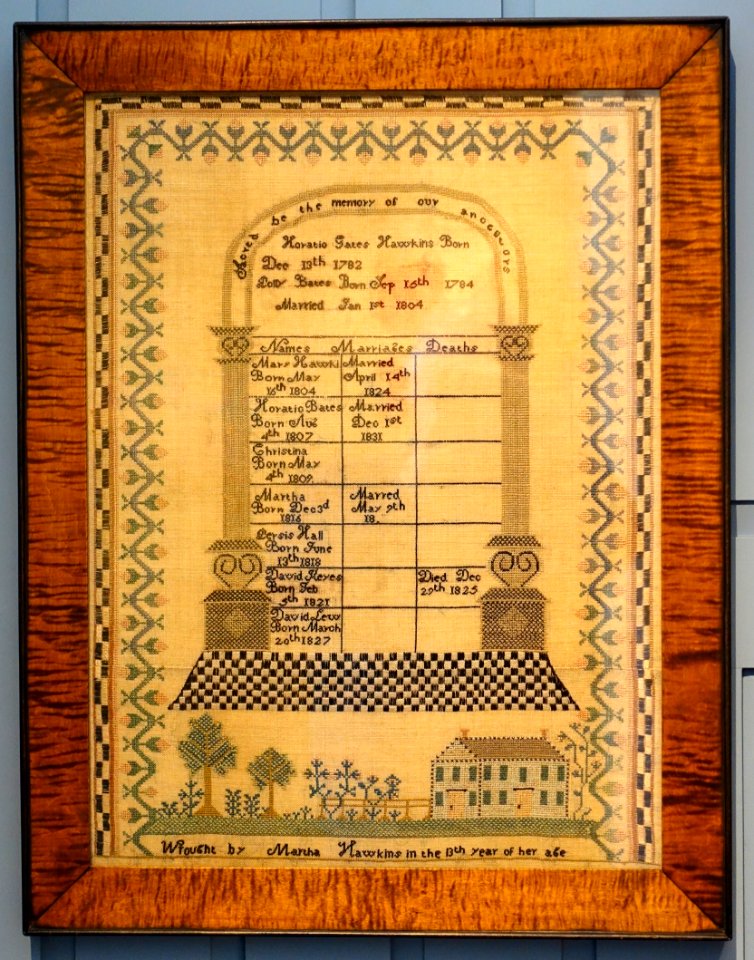 Sacred be the memory of our ancestors
Horatio Gates Hawkins Born
Dec 13th 1782
Bates Born Sep 16th 1784
Married Jan 1st 1804
Names Marriages Deaths
Mary Hawki Married
Born May April 14th
16th 1804 1824
Horatio Bates Married
Born Aug Dec 1st
4th 1807 1831
Christina
Born May
4th 1809
Martha Marred
Born Dec 3d May 9th
1816 18
Persis Hall
Born June
13th 1818
David Keyes Died Dec
Born Feb 29th 1825
5th 1821
David Levy
Born March
20th 1827
Wrought by Martha Hawkins in the 13th year of her age